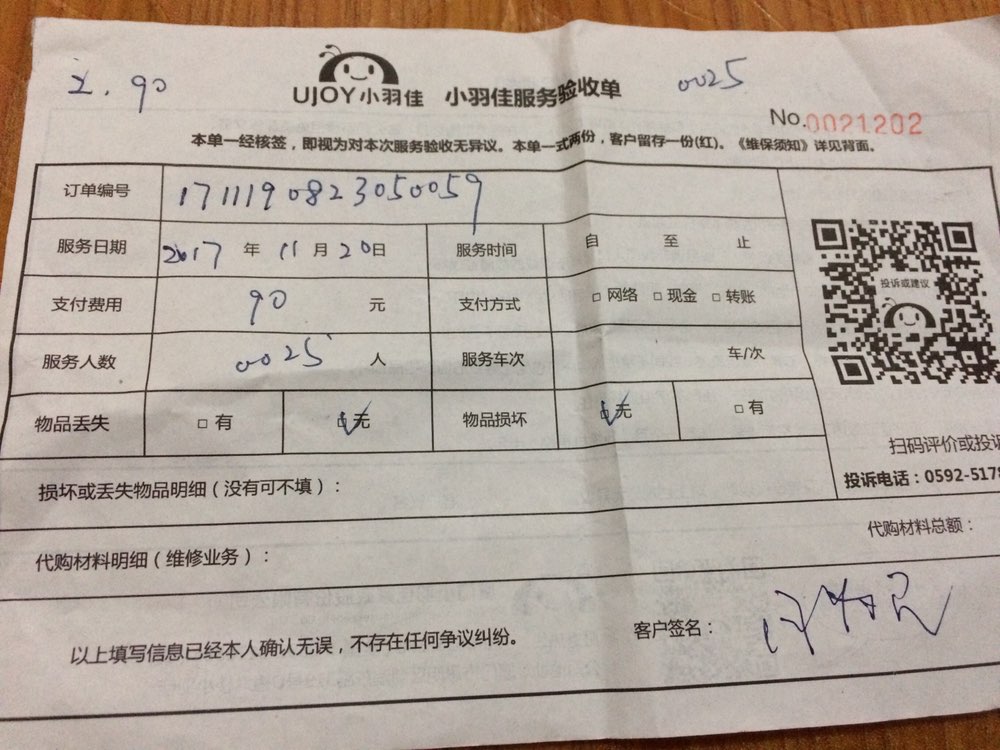 . 90
UJOY 小羽佳 小羽佳服务验收单 0025
No.0021202
本单一经核签，即视为对本次服务验收无异议。本单一式两份，客户留存一份(红)。《维保须知》详见背面。
订单编号 1711190823050059
服务日期 2017 年 11 月 20 日 服务时间 自 至 止
投诉或建议
支付费用 90 元 支付方式 □ 网络 □ 现金 □ 转账
服务人数 0025 人 服务车次 车/次
物品丢失 □ 有 □ 无 物品损坏 □ 无 □ 有
扫码评价或投诉
投诉电话：0592-5178
损坏或丢失物品明细（没有可不填）：
代购材料总额：
代购材料明细（维修业务）：
客户签名：
以上填写信息已经本人确认无误，不存在任何争议纠纷。